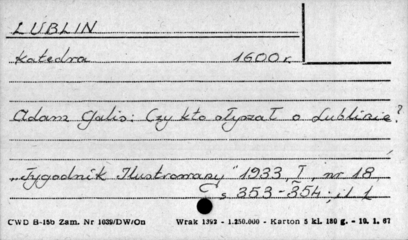 LUBLIN
Katedra 1600 r.
Adam Galis: Czy kto słyszał o Lublinie?
„Tygodnik Ilustrowany" 1933, I, nr 18,
s 353-354; il. 1
CWD B-15b Zam. Nr 1039/DW/On Wrak 1392 - 1.250.000 - Karton 5 kl. 180 g. - 10. 1. 67